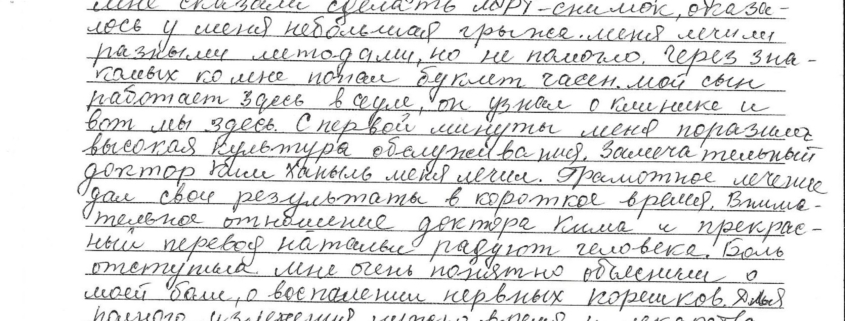 мне сказали сделать мрт-снимок, оказа-
лось у меня небольшая грыжа. меня лечили
разными методами, но не помогло. Через зна-
комых ко мне попал буклет часен. мой сын
работает здесь в сеуле, он узнал о клинике и
вот мы здесь. С первой минуты меня поразила
высокая культура обслуживания. Замечательный
доктор Ким Ханыль меня лечил. Грамотное лечение
дал свои результаты в короткое время. Внима-
тельное отношение доктора Кима и прекрас-
ный перевод натальи радуют человека. Боль
отступила мне очень понятно объяснили о
моей боли, о воспалении нервных корешков. Для
полного излечения нужно время и лекарства